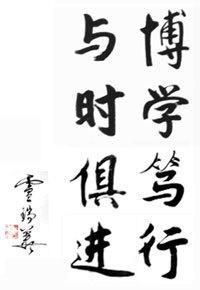 博学笃行
与时俱进